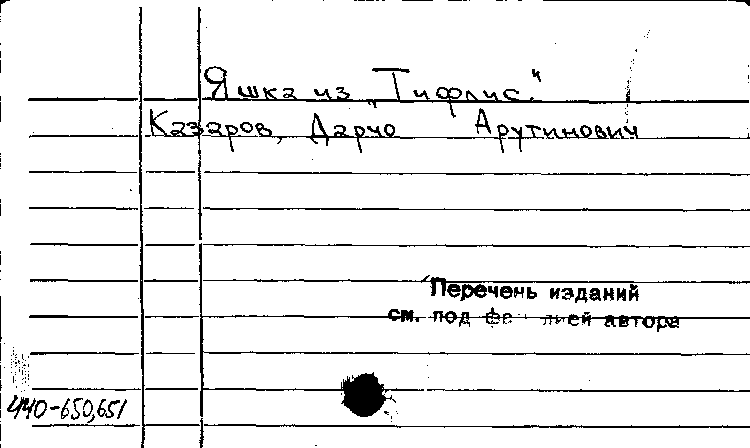 Яшка из „Тифлис."
Казаров, Дарчо Арутинович
Перечень изданий
см. под фа лией автора
440-650,651